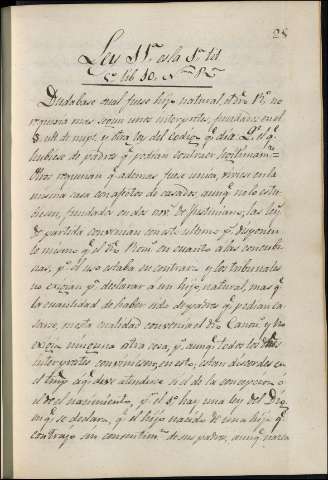 28
Ley 11ª es la 1ª tit
5º lib 10.
Dudabase cual fuese hijo natural, el dro. Rº. no
requeria mas, segun unos interpretes, fundados en el
§. ult. de nupt. y otra ley del Codigo qe. dice que
hubiese de padres qe. podian contraer
Otros requerian qe. ademas fuese unica, viviese en la
misma casa con afectos de casados, aunqe. no lo estu-
biesen, fundados en dos nov. de Justiniano; las leyes
de partida convenian con esto ultimo pr. disponen
lo mismo qe. el dro. Rom. en cuanto a las concubi-
nas, pº. el uso estaba en contrario y los tribunales
no exigian pª. declarar a un hijo natural, mas qe.
la cualidad de haber sido de padres qe. podian ca-
sarse, en esta cualidad convenia el dro. Canonº. y no
exigia ninguna otra cosa, pº. aunqe. todos los
interpretes convinieron en esto, estan discordes en
el tmpº. a qe. deve atenderse si al de la concepcion o
al de el nacimiento, pr. el 1º hay una ley del Dig.
en qe. se declara, qe. el hijo nacido de una hija qe.
contrajo sin consentimtº. de su padre, aunqe. nazca